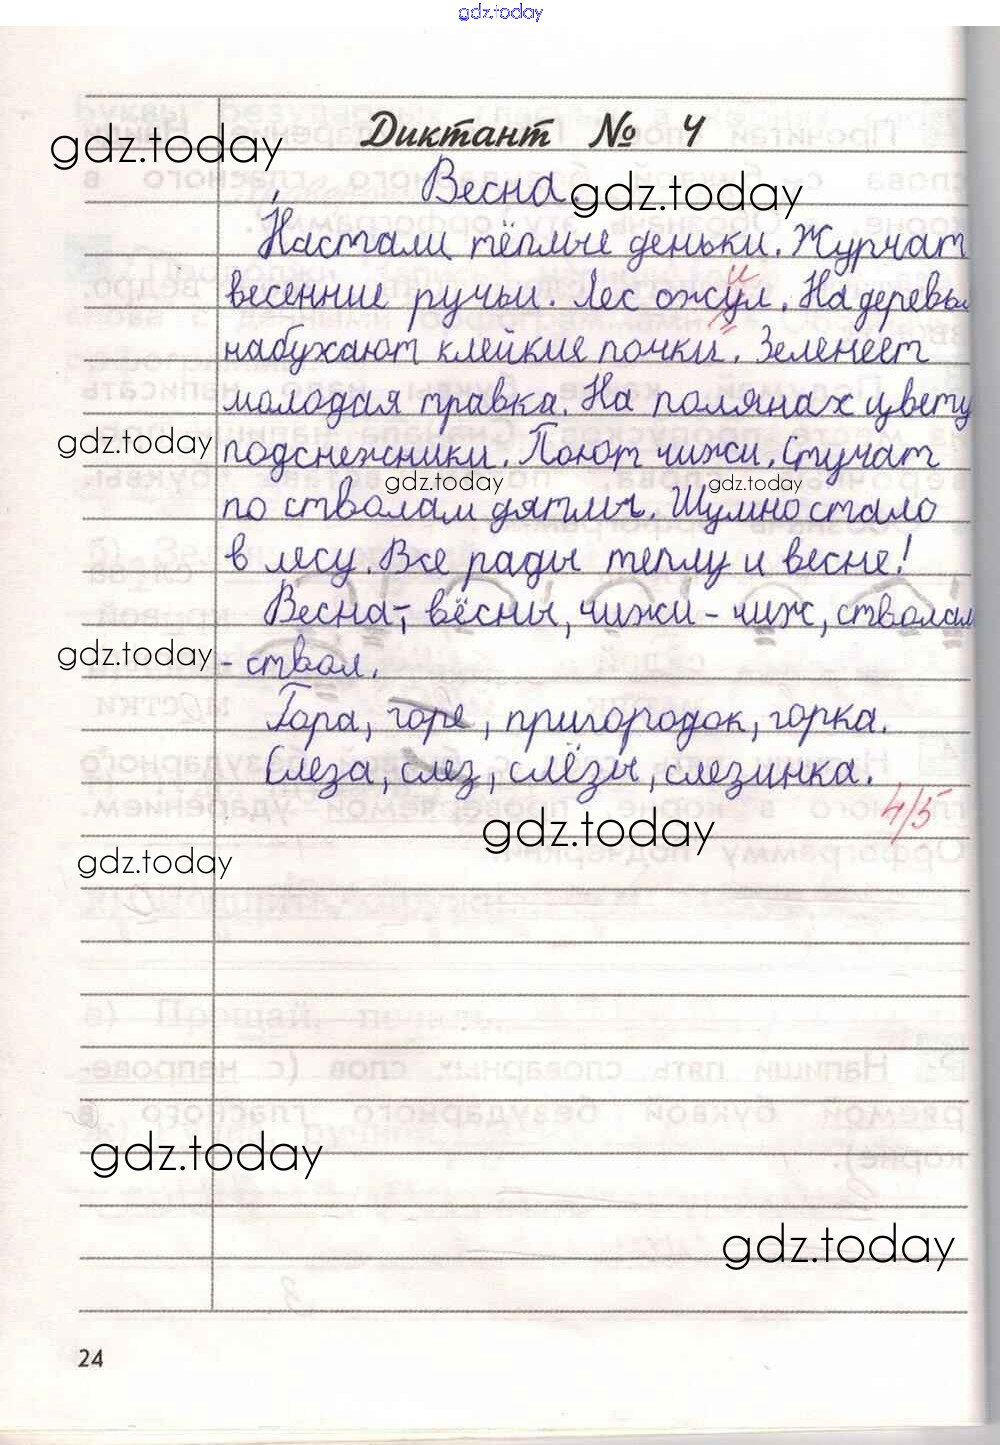 gdz.today
Диктант № 4
gdz.today
Весна.
gdz.today
Настали тёплые деньки. Журчат
весенние ручьи. Лес ожул. На деревьях
и
набухают клейкие почки. Зеленеет
молодая травка. На полянах цвету
gdz.today
подснежники. Поют чижи. Стучат
gdz.today
gdz.today
по стволам дятлы. Шумно стало
в лесу. Все рады теплу и весне!
Весна -, вёсны, чижи - чиж, стволам
gdz.today
- ствол.
Гора, горе, пригородок, горка.
Слеза, слез, слёзы, слезинка.
4/5
gdz.today
gdz.today
gdz.today
gdz.today
24